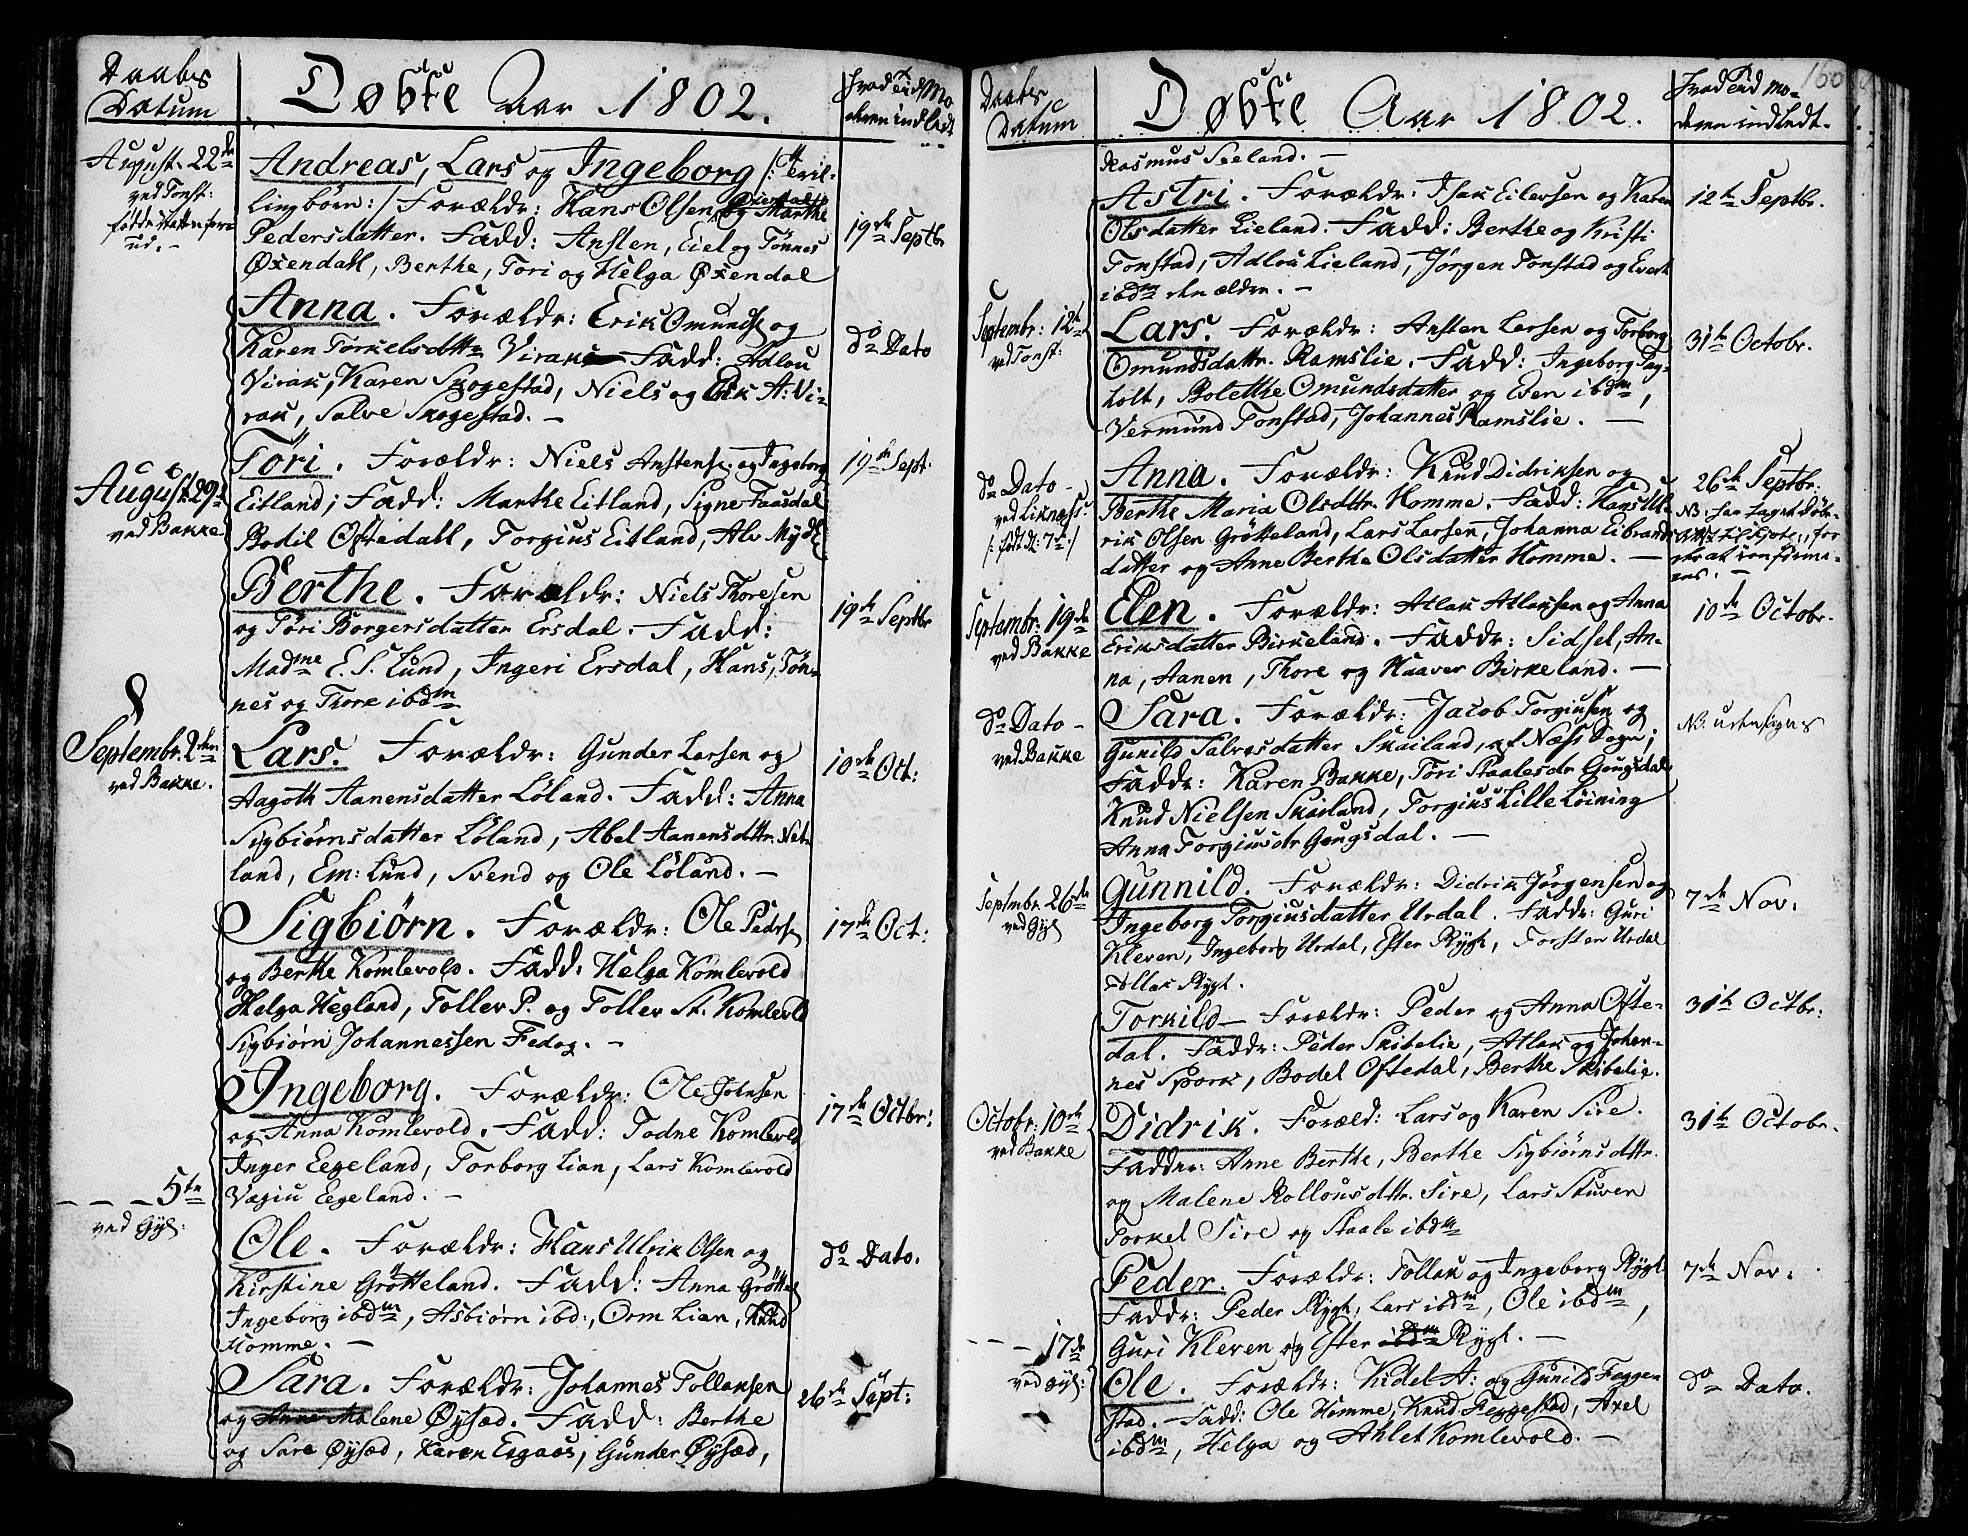 Daabs Datum
Døbte Aar 1802.
Hvad tid Mo-
deren indledt
August. 22de
ved Tonst:
Andreas, Lars og Ingeborg /: Tril-
lingbörn :/ Forældr: Hans Olsen Øxendal og Marthe
Pedersdatter. Fadd: Ansten, Eiel og Tønnes
Øxendahl, Berthe, Tori og Helga Øxendal
19de Septbr
Anna. Forældr: Erik Omunds. og
Karen Torkelsdttr Virak Fadd: Adlou
Virak, Karen Skogestad, Niels og Erik A: Vi-
rak, Salve Skogestad. –
do Dato
August 29de
ved Bakke
Töri. Forældr: Niels Anstens. og Ingeborg
Eitland; Fadd: Marthe Eitland, Signe Faasdal
Bodil Oftedahl, Torgius Eitland, Alv Mydl
19de Sept:
Berthe. Forældr: Niels Thoresen
og Töri Borgersdatter Ersdal. Fadd:
Madme E. S. Lund, Ingeri Ersdal, Hans, Tön-
nes og Thore ibdm
19de Septbr
Septembr: 2den
ved Bakke.
Lars. Forældr: Gunder Larsen og
Aagoth Aanensdatter Löland. Fadd: Anna
Sigbiörnsdatter Löland, Abel Aanensdttr. Net-
land, Em: Lund, Svend og Ole Löland. –
10de Oct:
Sigbiörn. Forældr: Ole Peders.
og Berthe Komlevold. Fadd: Helga Komlevold
Helga Hegland, Tollev P. og Tollev St. Komlevld
Sigbiörn Johannessen Fedog. –
17de Oct:
Ingeborg. Forældr: Ole Johnsen
og Anna Komlevold. Fadd: Todne Komlevld
Inger Eegeland, Torborg Lian, Lars Komlevold
Vægiu Eegeland. –
17de Octbr:
– – – 5te
ved Gyl:
Ole. Forældr: Hans Ulrik Olsen og
Kirstine Grötteland. Fadd: Anna Gröttel
Ingeborg ibdm, Asbiörn ibd:, Orm Lian, Knud
Homme. –
do Dato.
Sara. Forældr: Johannes Tollaksen
og Anne Malene Øysæd. Fadd: Berthe
og Sara Øysæd, Karen Egaas, Gunder Øysæd,
26de Sept:
Daabs
Datum
Døbte Aar 1802.
Hvad tid Mo-
deren indledt.
160
Rasmus Seeland. –
Astri. Forældr: Isak Eilersen og Karen
Olsdatter Lieland. Fadd: Berthe og Kristi
Tonstad, Adlou Lieland, Jörgen Tonstad og Evert
ibdm den ældre. –
12te Septbr.
Septembr: 12te
ved Tonst:
Lars. Forældr: Ansten Larsen og Torborg
Omundsdattr. Ramslie. Fadd: Ingeborg
holt, Bolethe Omundsdatter og Even ibdm,
Vermund Tonstad, Johannes Ramslie. –
31te Octobr.
do Dato –
ved Liknæs
/: födt d: 7de :/
Anna. Forældr: Knud Didriksen og
Berthe Maria Olsdttr. Homme. Fadd: Hans Ul-
rik Olsen Grötteland, Lars Larsen, Johanna Eibrands
datter og Anne Berthe Olsdatter Homme. –
26de Septbr:
Septembr: 19de
ved Bakke
Elen. Forældr: Atlak Atlaksen og Anna
Eriksdatter Birkeland. Faddr: Sidsel, An-
na, Aanen, Thore og Haaver Birkeland. –
10de Octobr.
do Dato –
ved Bakke
Sara. Forældr: Jacob Torgiusen og
Gunild Salvesdatter Skailand, af Næss Sogn;
Faddr: Karen Bakke, Töri Staalesdr Gougsdal
Knud Nielsen Skailand, Torgius Lille Löining
Anna Torgiusdr Gougsdal. –
NB. udensogns
Septmbr. 26de
ved Gyl
Gunnild. Forældr: Didrik Jörgensen og
Ingeborg Torgiusdatter Urdal. Faddr: Guri
Kleven, Ingeborg Urdal, Ester Rygh, Torsten Urdal
Tollak Rygh.
7de Nov:
Torkild – Forældr: Peder og Anna Ofte-
dal. Faddr: Peder Skibelie, Atlak og Johan-
nes Spork, Bodel Oftedal, Berthe Skibelie.
31te Octbr:
Octobr: 10de
ved Bakke
Didrik. Foræld: Lars og Karen Sire.
Faddre: Anne Berthe, Berthe Sigbiörnsdttr.
og Malene Rollousdttr. Sire, Lars Stuven
Torkel Sire og Staale ibdm
31te Octobr.
Peder. Forældr: Tollak og Ingeborg Rygh
Faddr: Peder Rygh, Lars ibdm, Ole ibdm,
Guri Kleven og Ester ibdm Rygh. –
7de Nov:
– – 17de
ved Gyl:
Ole. Forældr: Kidel A: og Gunild Feggen
stad. – Fadd: Ole Homme, Knud Feggestad, Axel
ibdm, Helga og Ahlet Komlevold. –
do Dato.